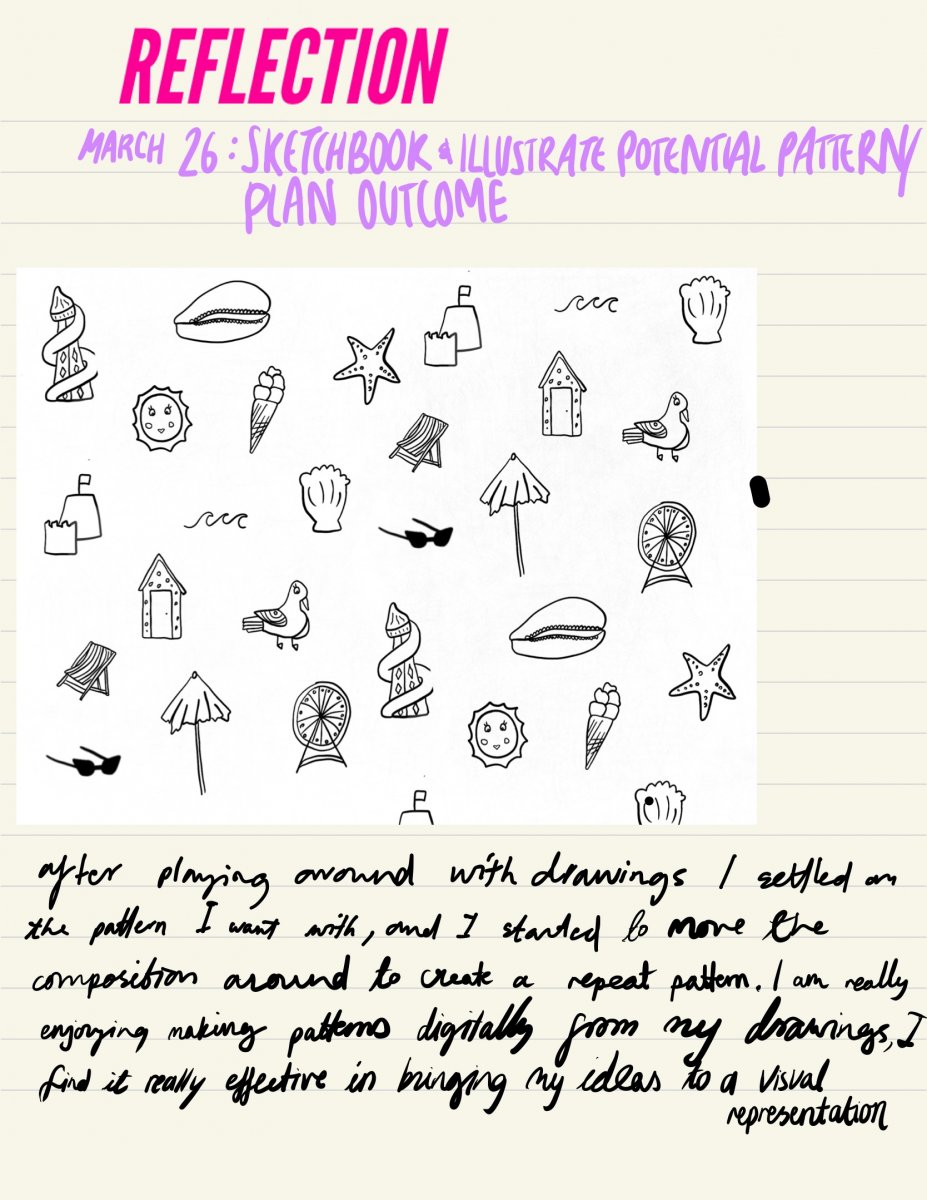 REFLECTION
MARCH 26: SKETCHBOOK & ILLUSTRATE POTENTIAL PATTERN/
PLAN OUTCOME
after playing around with drawings I settled on
the pattern I want with, and I started to move the
composition around to create a repeat pattern. I am really
enjoying making patterns digitally from my drawings, I
find it really effective in bringing my ideas to a visual
representation